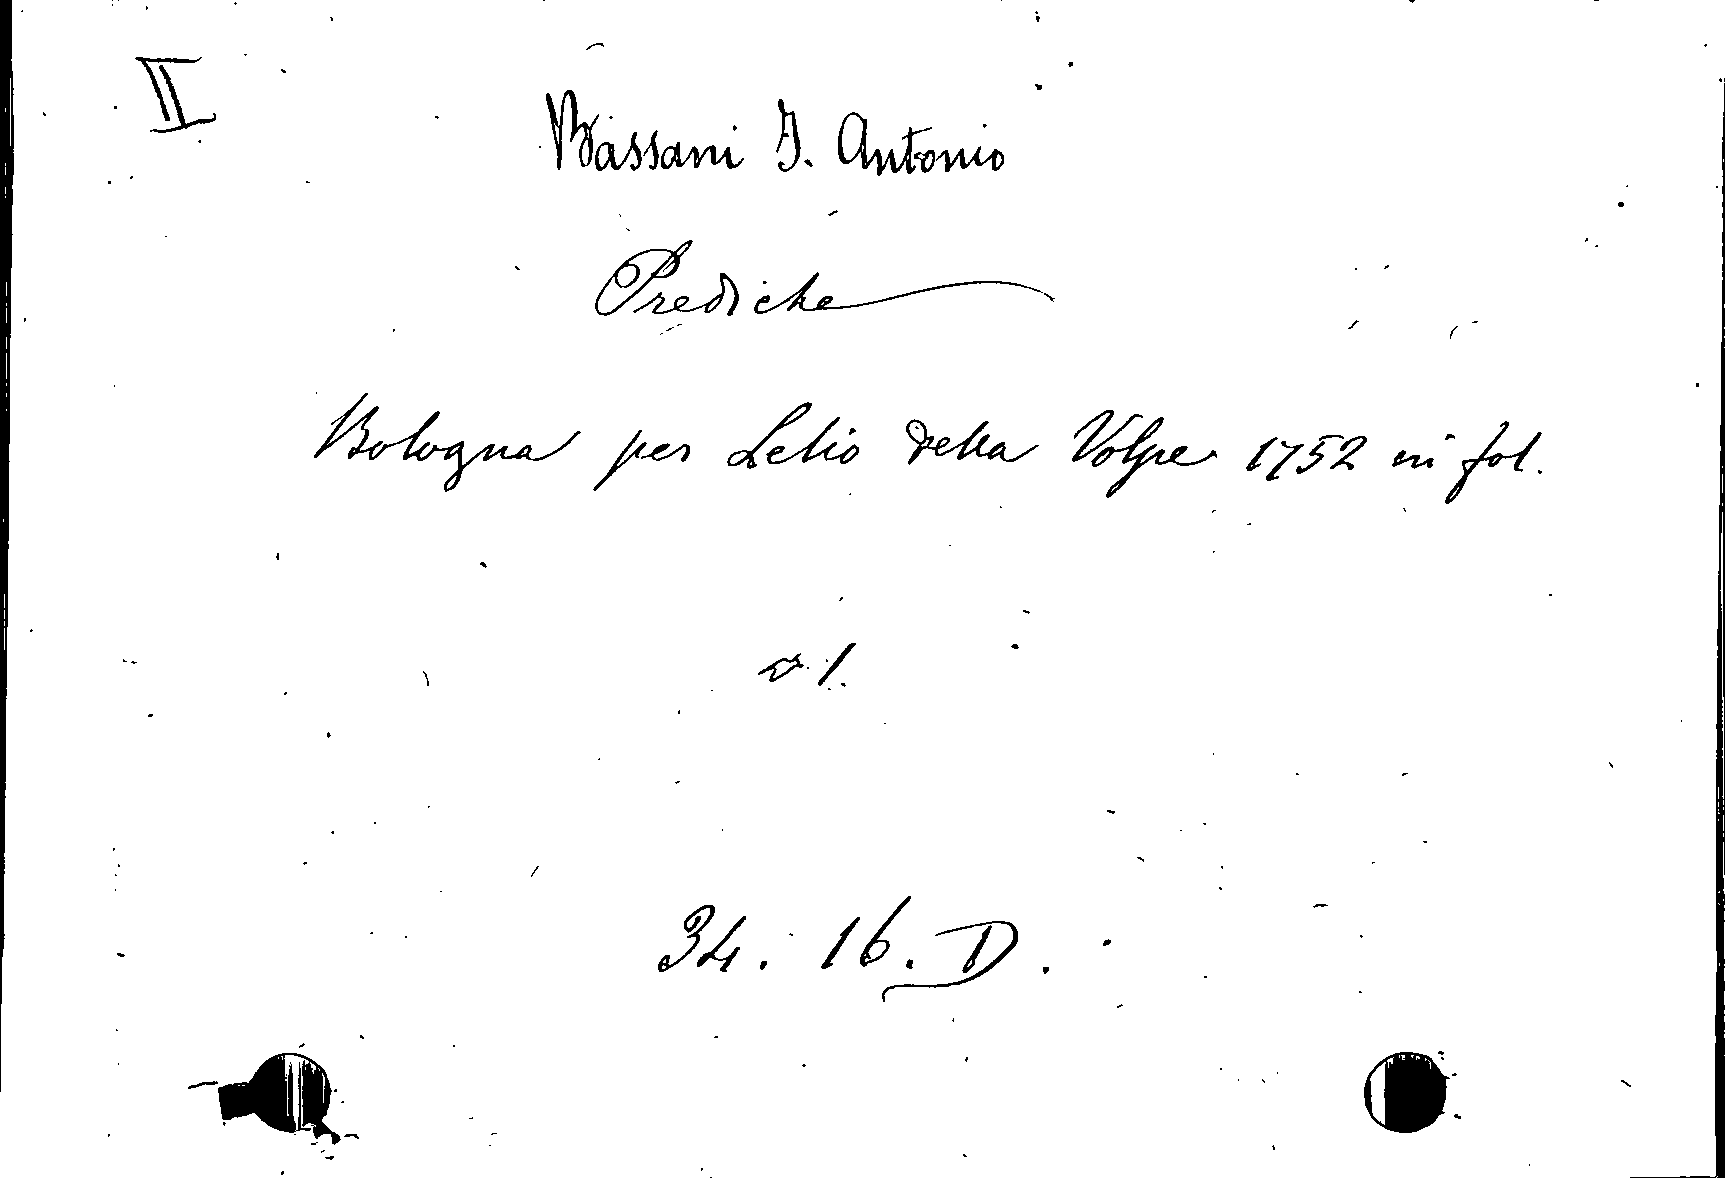 II
Bassani J. Antonio
Prediche
Bologna per Lelio della Volpe 1752 in fol.
v 1.
34. 16. D.